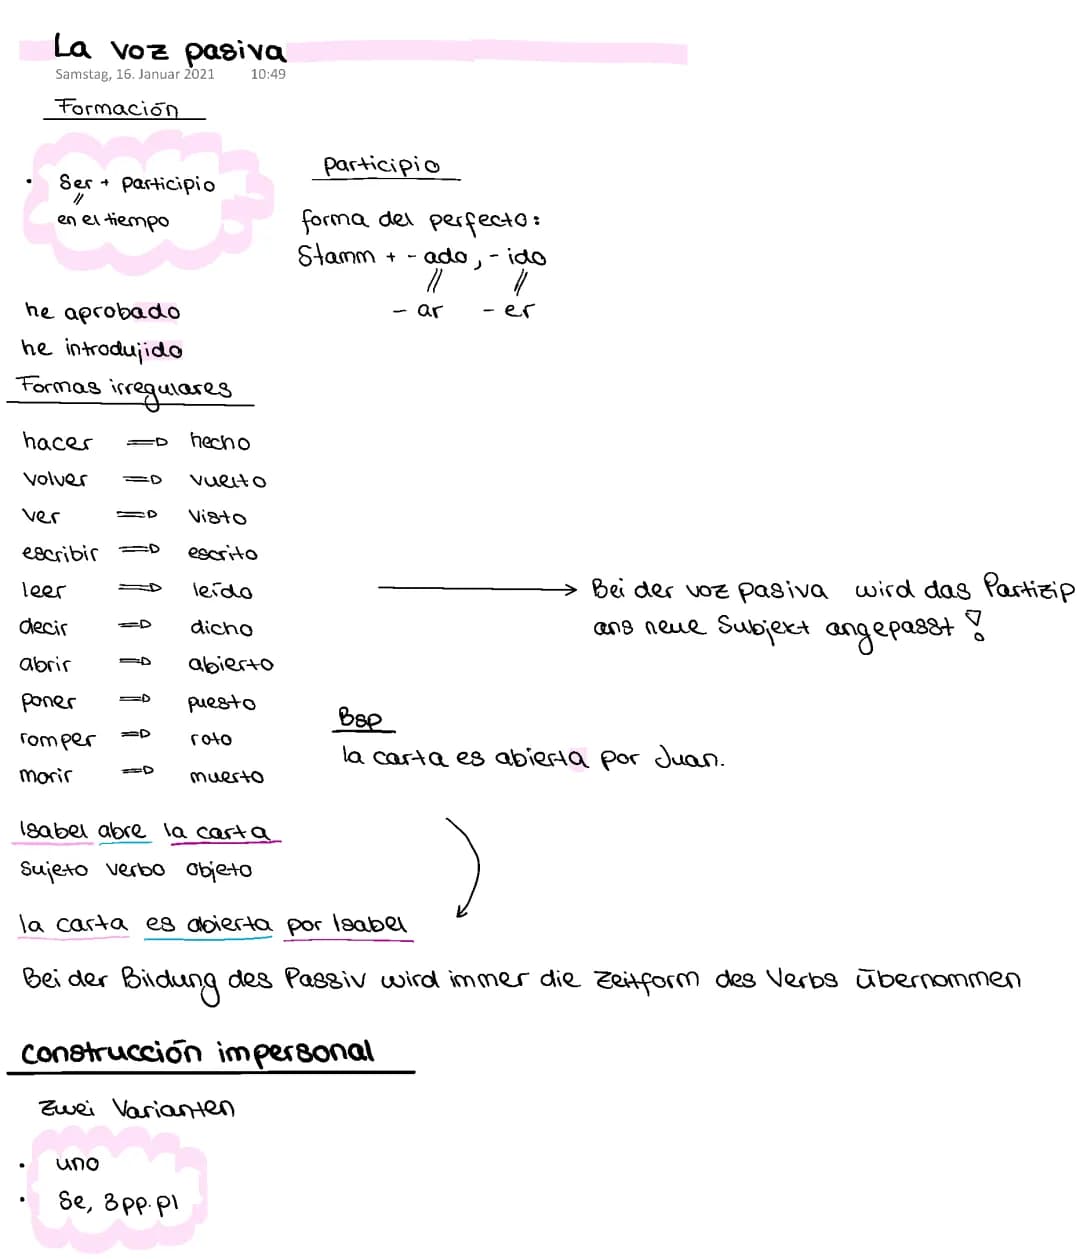 La voz pasiva
Samstag, 16. Januar 2021 10:49
Formación
• Ser + participio
//
en el tiempo
participio
forma del perfecto:
Stamm + - ado, - ido
// //
- ar - er
he aprobado
he introdujido
Formas irregulares
hacer ⇒ hecho
volver ⇒ vuelto
ver ⇒ visto
escribir ⇒ escrito
leer ⇒ leído
decir ⇒ dicho
abrir ⇒ abierto
poner ⇒ puesto
romper ⇒ roto
morir ⇒ muerto
→ Bei der voz pasiva wird das Partizip
ans neue Subjekt angepasst!
Bsp
la carta es abierta por Juan.
Isabel abre la carta
Sujeto verbo objeto
la carta es abierta por Isabel
Bei der Bildung des Passiv wird immer die Zeitform des Verbs übernommen
construcción impersonal
Zwei Varianten
• uno
• Se, 3pp. pl